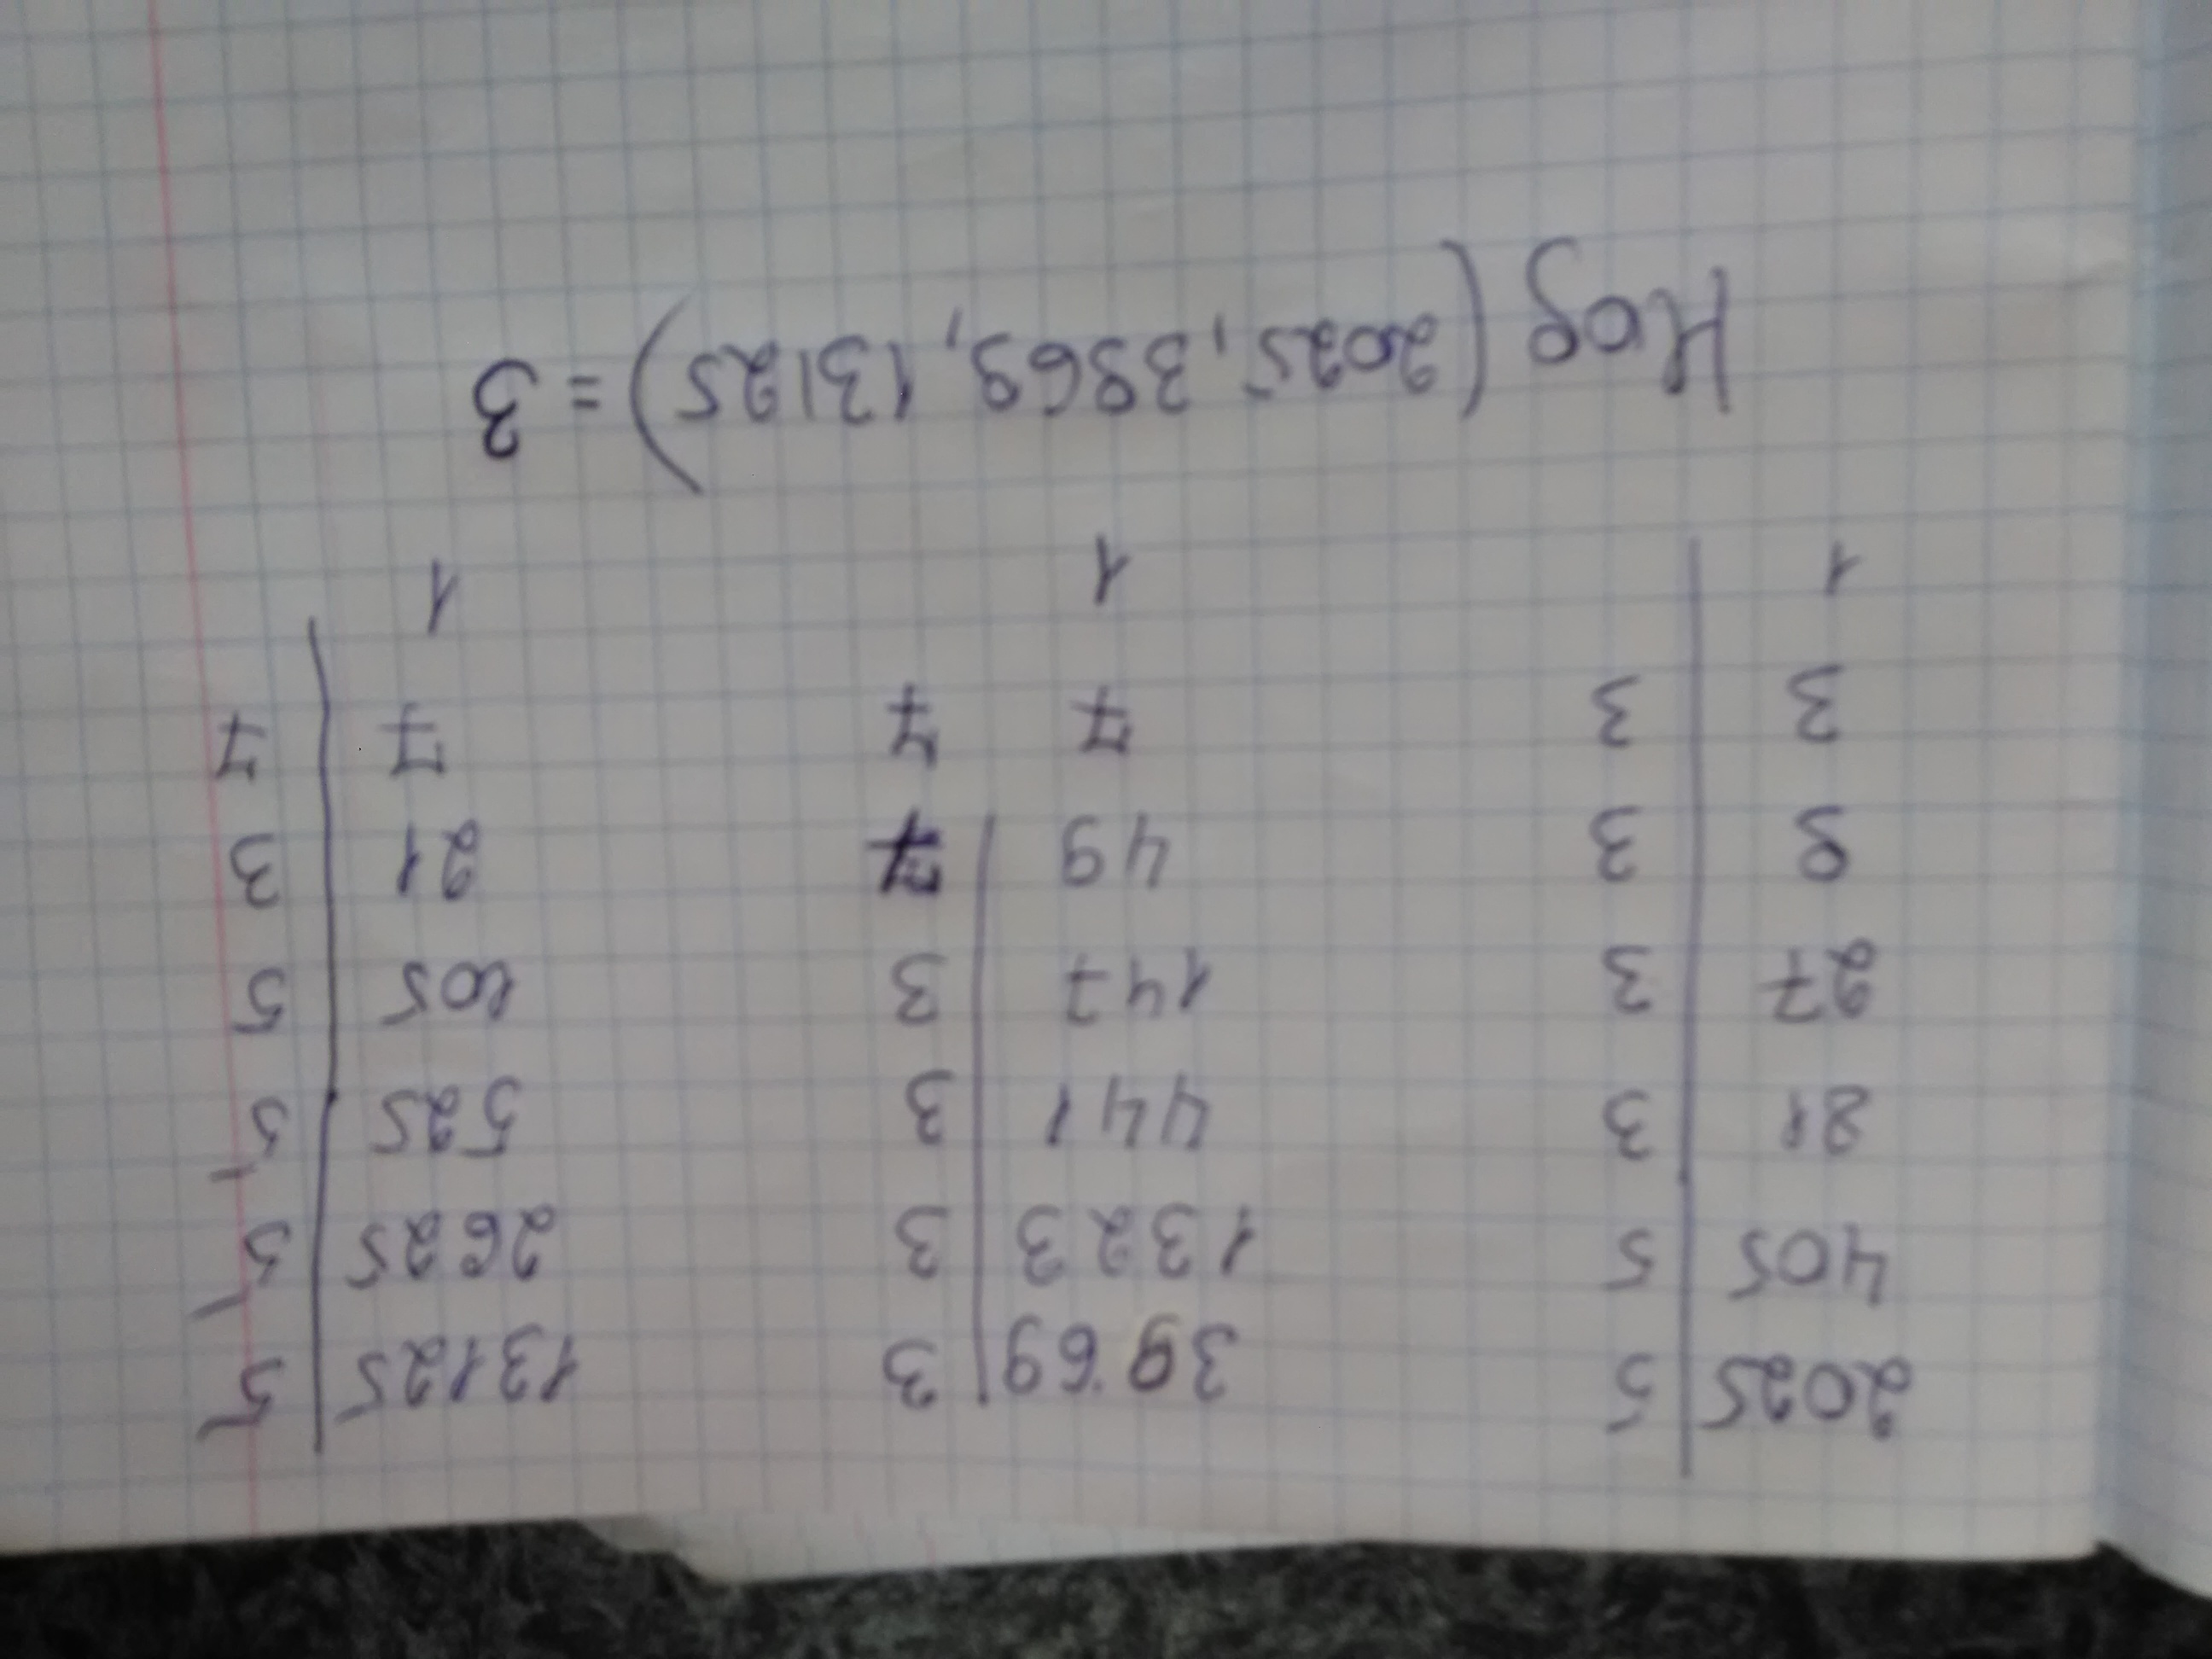 2025 | 5 3969 | 3 13125 | 5
405 | 5 1323 | 3 2625 | 5
81 | 3 441 | 3 525 | 5
27 | 3 147 | 3 105 | 5
9 | 3 49 | 7 21 | 3
3 | 3 7 7 7 | 7
1 1 1
НОД (2025, 3969, 13125) = 3